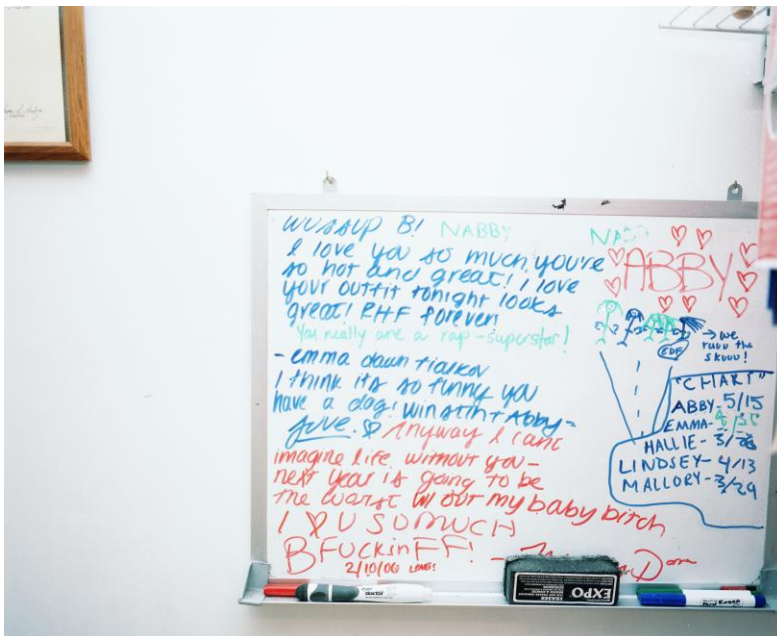 WUSSUP B! NABBY
I love you so much, you're
so hot and great! I love
your outfit tonight looks
great! RHF forever!
You really are a rap-superstar!
- emma dawn
I think its so funny you
have a dog! winstin + Abby =
love. Anyway I cant
imagine life without you -
next year is going to be
the worst w/out my baby bitch
I ♡ U SO MUCH
BFUCKinFF! -
2/10/06
ABBY
→ we
ruuu the
skuuu!
EDF
"CHART"
ABBY - 5/15
EMMA -
HALLIE - 3/
LINDSEY - 4/13
MALLORY - 3/29
doctor
EXPO
ERASER